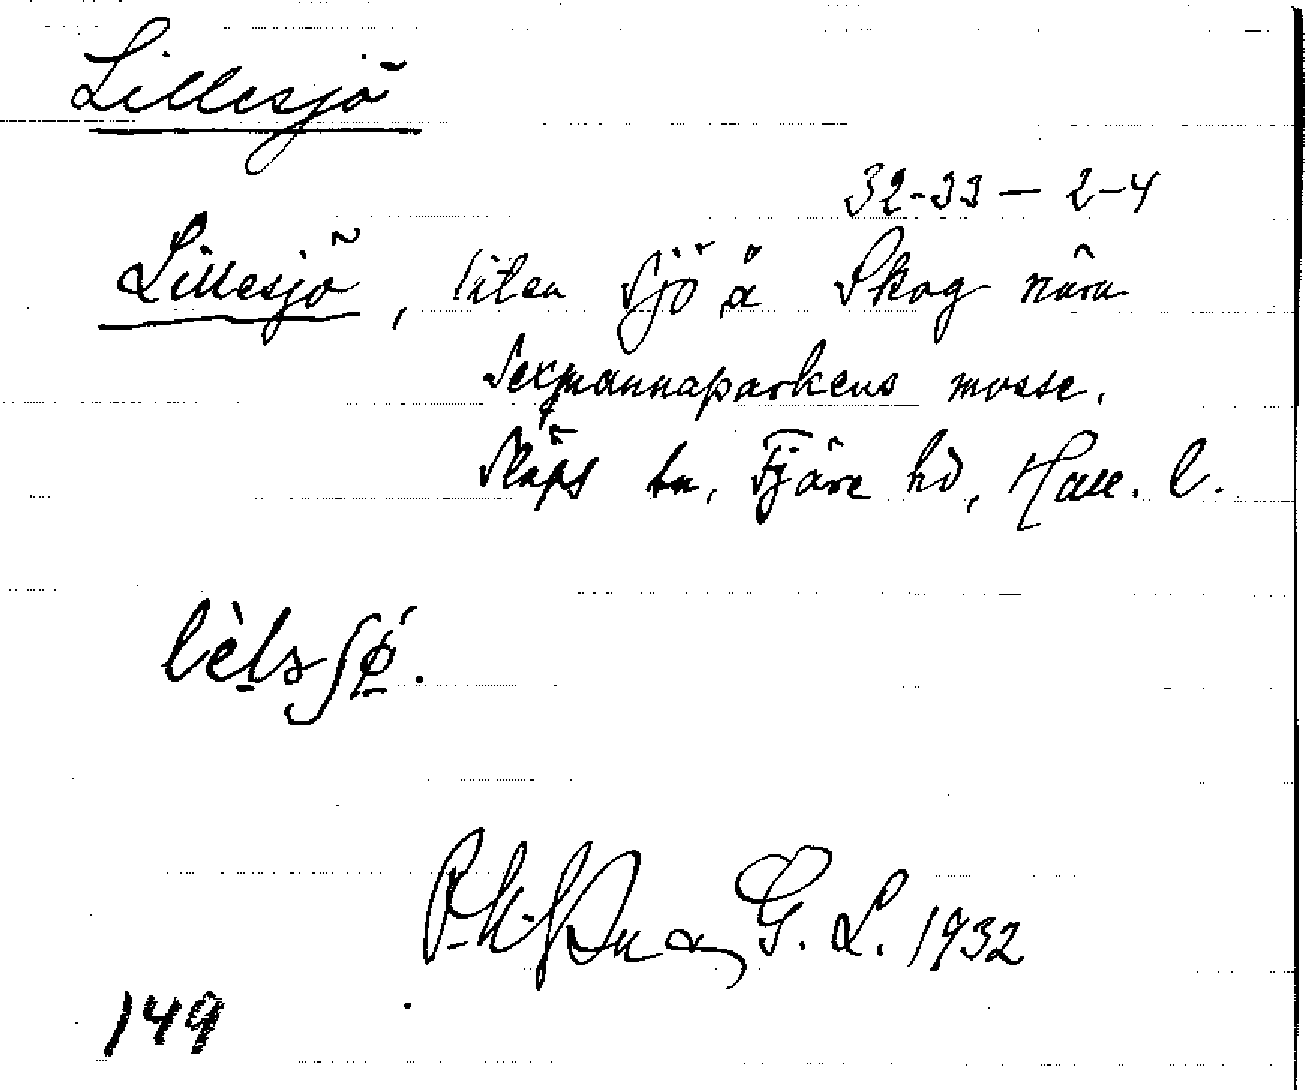 Lillesjö
32-33 — 2-4
Lillesjö, liten sjö å Skog nära
Sexmannaparkens mosse.
Släps sn, Fjäre hd, Hall. l.
G. L. 1932
149